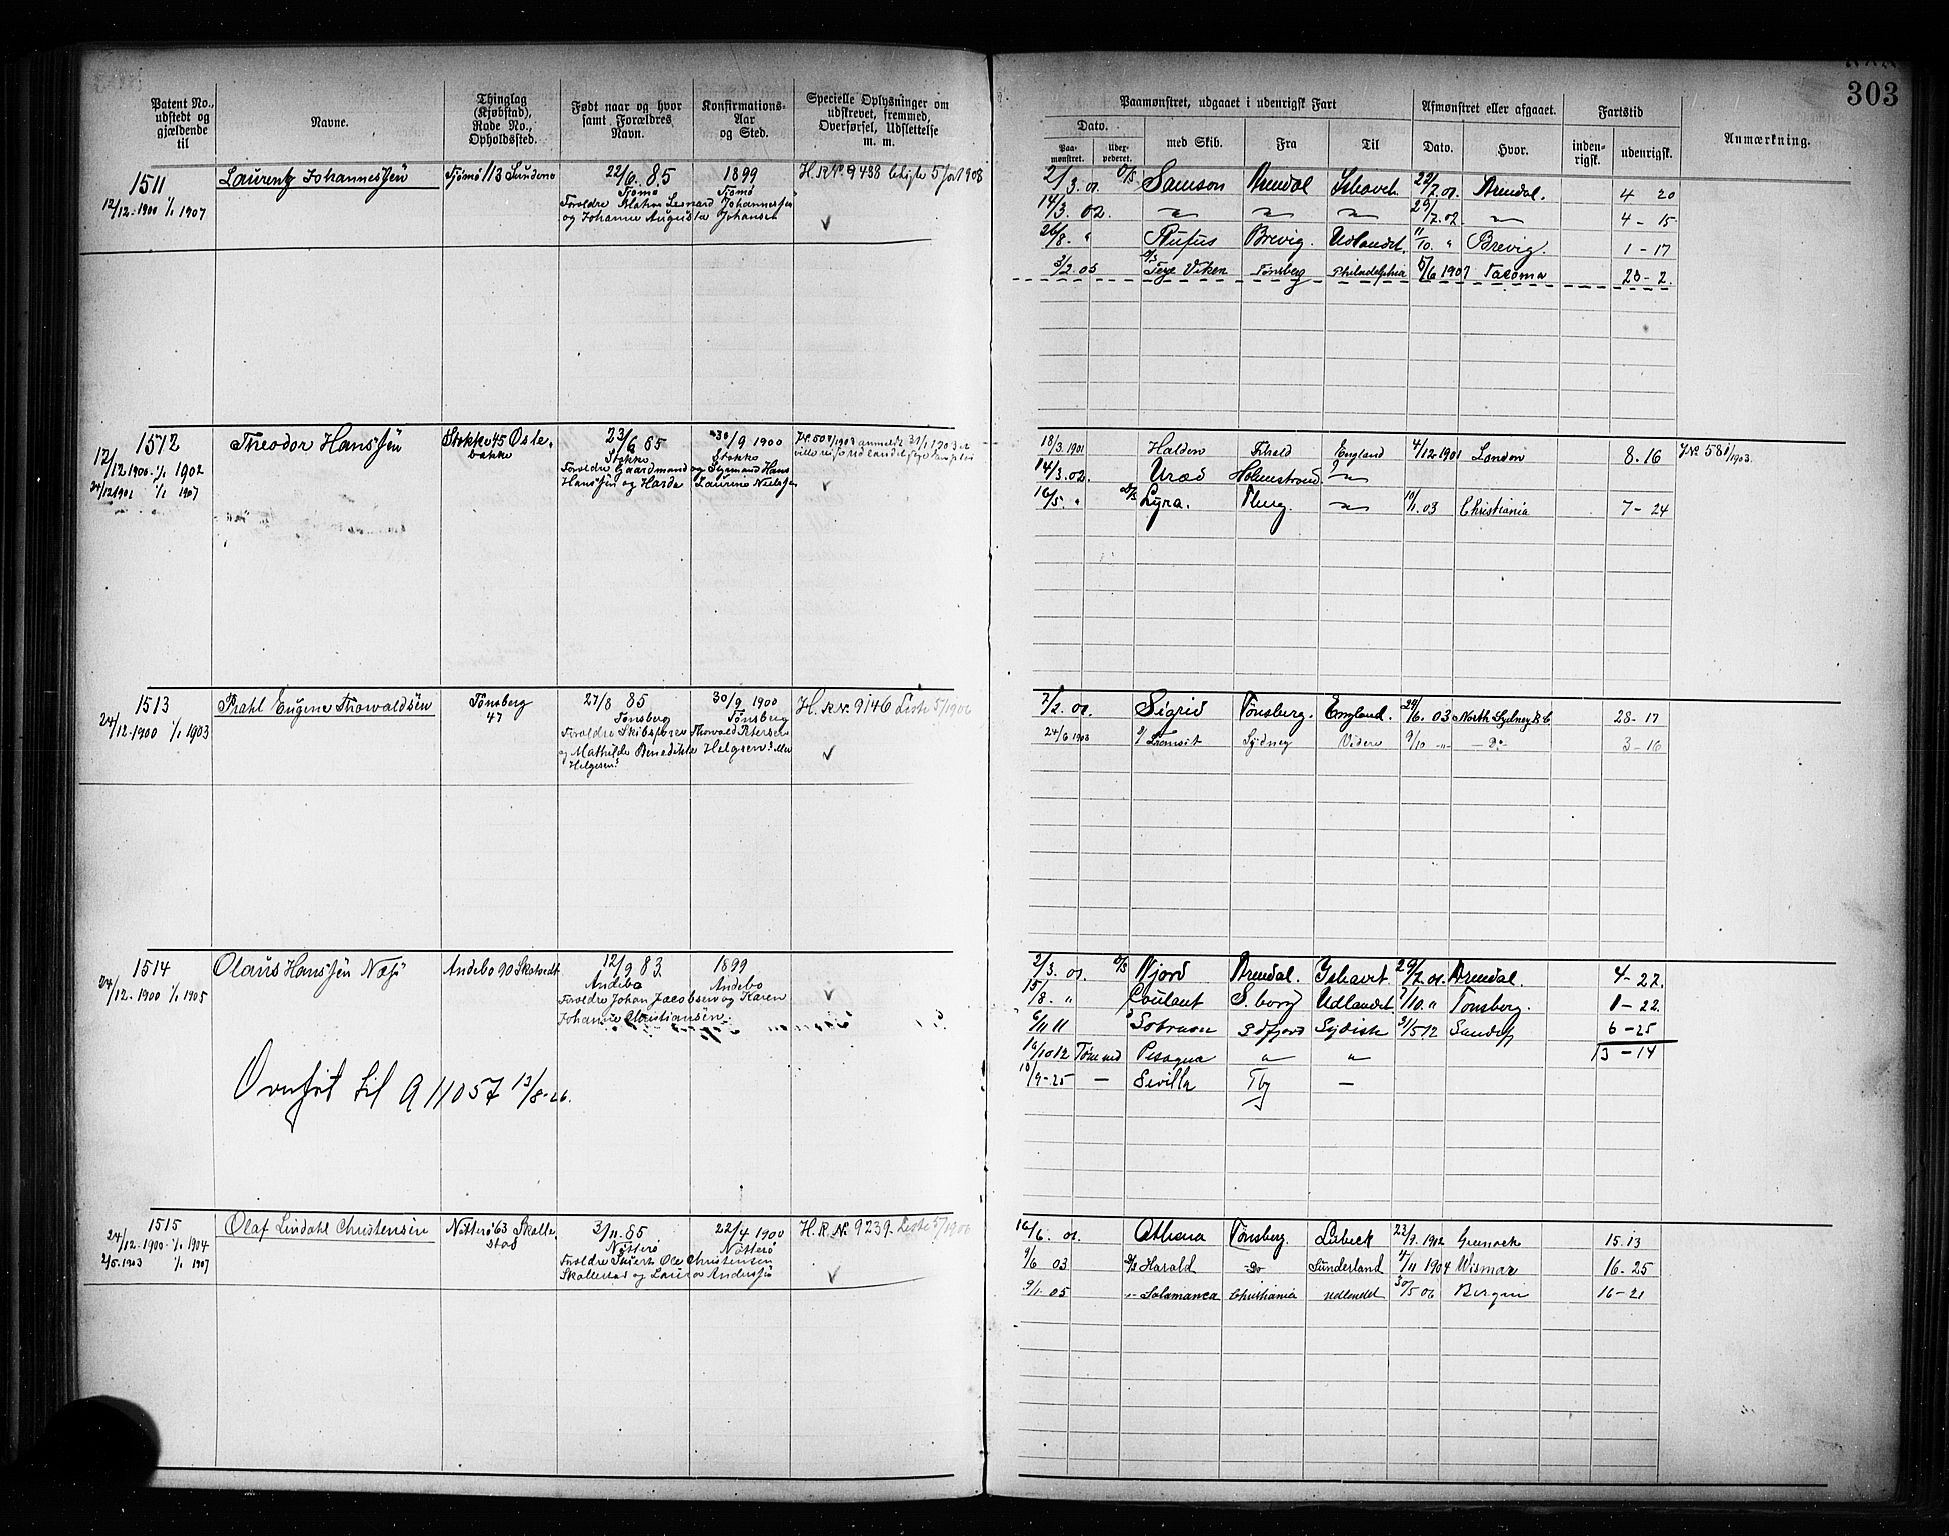 303
Patent No., udstedt og gjældende til
Navne.
Thinglag (Kjøbstad), Rode No., Opholdssted.
Født naar og hvor samt Forældres Navn.
Konfirmations-Aar og Sted.
Specielle Oplysninger om udskrevet, fremmed, Overførsel, Udslettelse m. m.
Paamønstret, udgaaet i udenrigsk Fart
Afmønstret eller afgaaet.
Fartstid
Anmærkning.
Dato.
Paa-mønstret.
Udex-pederet.
med Skib.
Fra
Til
Dato.
Hvor.
inden-rigsk.
udenrigsk.
1511
12/12-1900 1/1 1907
Laurentz Johannessen
Tjømø 113 Sundene
22/6. 85
Tjømø
1899
Tjømø
Forældre Klakon Leonard Johannessen
og Johanne Augusta Johansen
H.R.No. 9438 5/ 1908
2/3. 01. Samson Arendal Ishavet 22/7. 01. Arendal. 4 20
14/3. 02. 29/7. 02. 4 - 15
26/8. " Rufus Brevig. Udlandet. 11/10. " Brevig. 1 - 17
3/2. 05 Terje Viken Tønsberg Philadelphia 5/6 1907 Tacoma 23 - 2.
1512
12/12-1900. 1/1 1902
24/12 1902 1/1 1907
Theodor Hanssen
Stokke 45 Østebakke
23/6 85
Stokke
30/9 1900
Stokke
Forældre Gaardmand og Sjømand Hans
Hanssen og Laurine Nielsen
18/3. 1901 Halden Fhald England 4/12 1901 London 8. 16
14/3. 02. Uræd Holmestrand
16/5. " Lyra. Tberg. 10/1. 03 Christiania 7 - 24
1513
24/12-1900 1/1 1903
Prahl Eugene Thorvaldsen
Tønsberg
47
27/8 85
Tønsberg
30/9 1900
Tønsberg
Forældre Thorvald Petersen
og Mathilde Benedikte Helgsen? eller
Helgesen?
H. R. No. 9146 Liste 5/1906
7/2. 01. Sigrid Tønsberg. England. 24/6. 03 North Sydney B C 28 - 17
24/6 1903 Sydney Videre 9/10 3 - 16
1514
24/12-1900 1/1 1905
Olaus Hanssen Næsø
Andebo 90 Skatvedt
12/9 83.
Andebo
1899
Andebo
Forældre Johan Jacobsen og Karen
Johanne Christiansen.
2/3. 01. Njord Arendal. Ishavet 29/7. 01. Arendal. 4 - 22.
15/8. " Coulant S. borg Udlandet 1/10. " Tønsberg. 1 - 22.
6/11 11 Sobraon Sdfjord Sydish 31/5 12 Sandefj 6 - 25
13 - 14
16/10 12 Tømmd Pisagua " "
10/9-25 — Sevilla Tbg —
Overført til A 11057 13/8-26.
1515
24/12-1900. 1/1 1904
2/5. 1903 1/1 1907
Olaf Lindahl Christensen
Nøtterø 63 Skallestad
3/11. 85
Nøtterø
22/4 1900
Nøtterø
Forældre Ole Christensen
Skallestad og Laura Anderssen
H. R. No. 9239. Liste 5/1906
16/6. 01. Athena Tønsberg. Lübeck 23/9. 1902 Greenock 15. 13
9/6 03 Harald do Sunderland 4/11 1904 Wismar 16 - 25
9/1. 05 Salamanca Christiania udlandet 30/5 06 Bergen 16 - 21